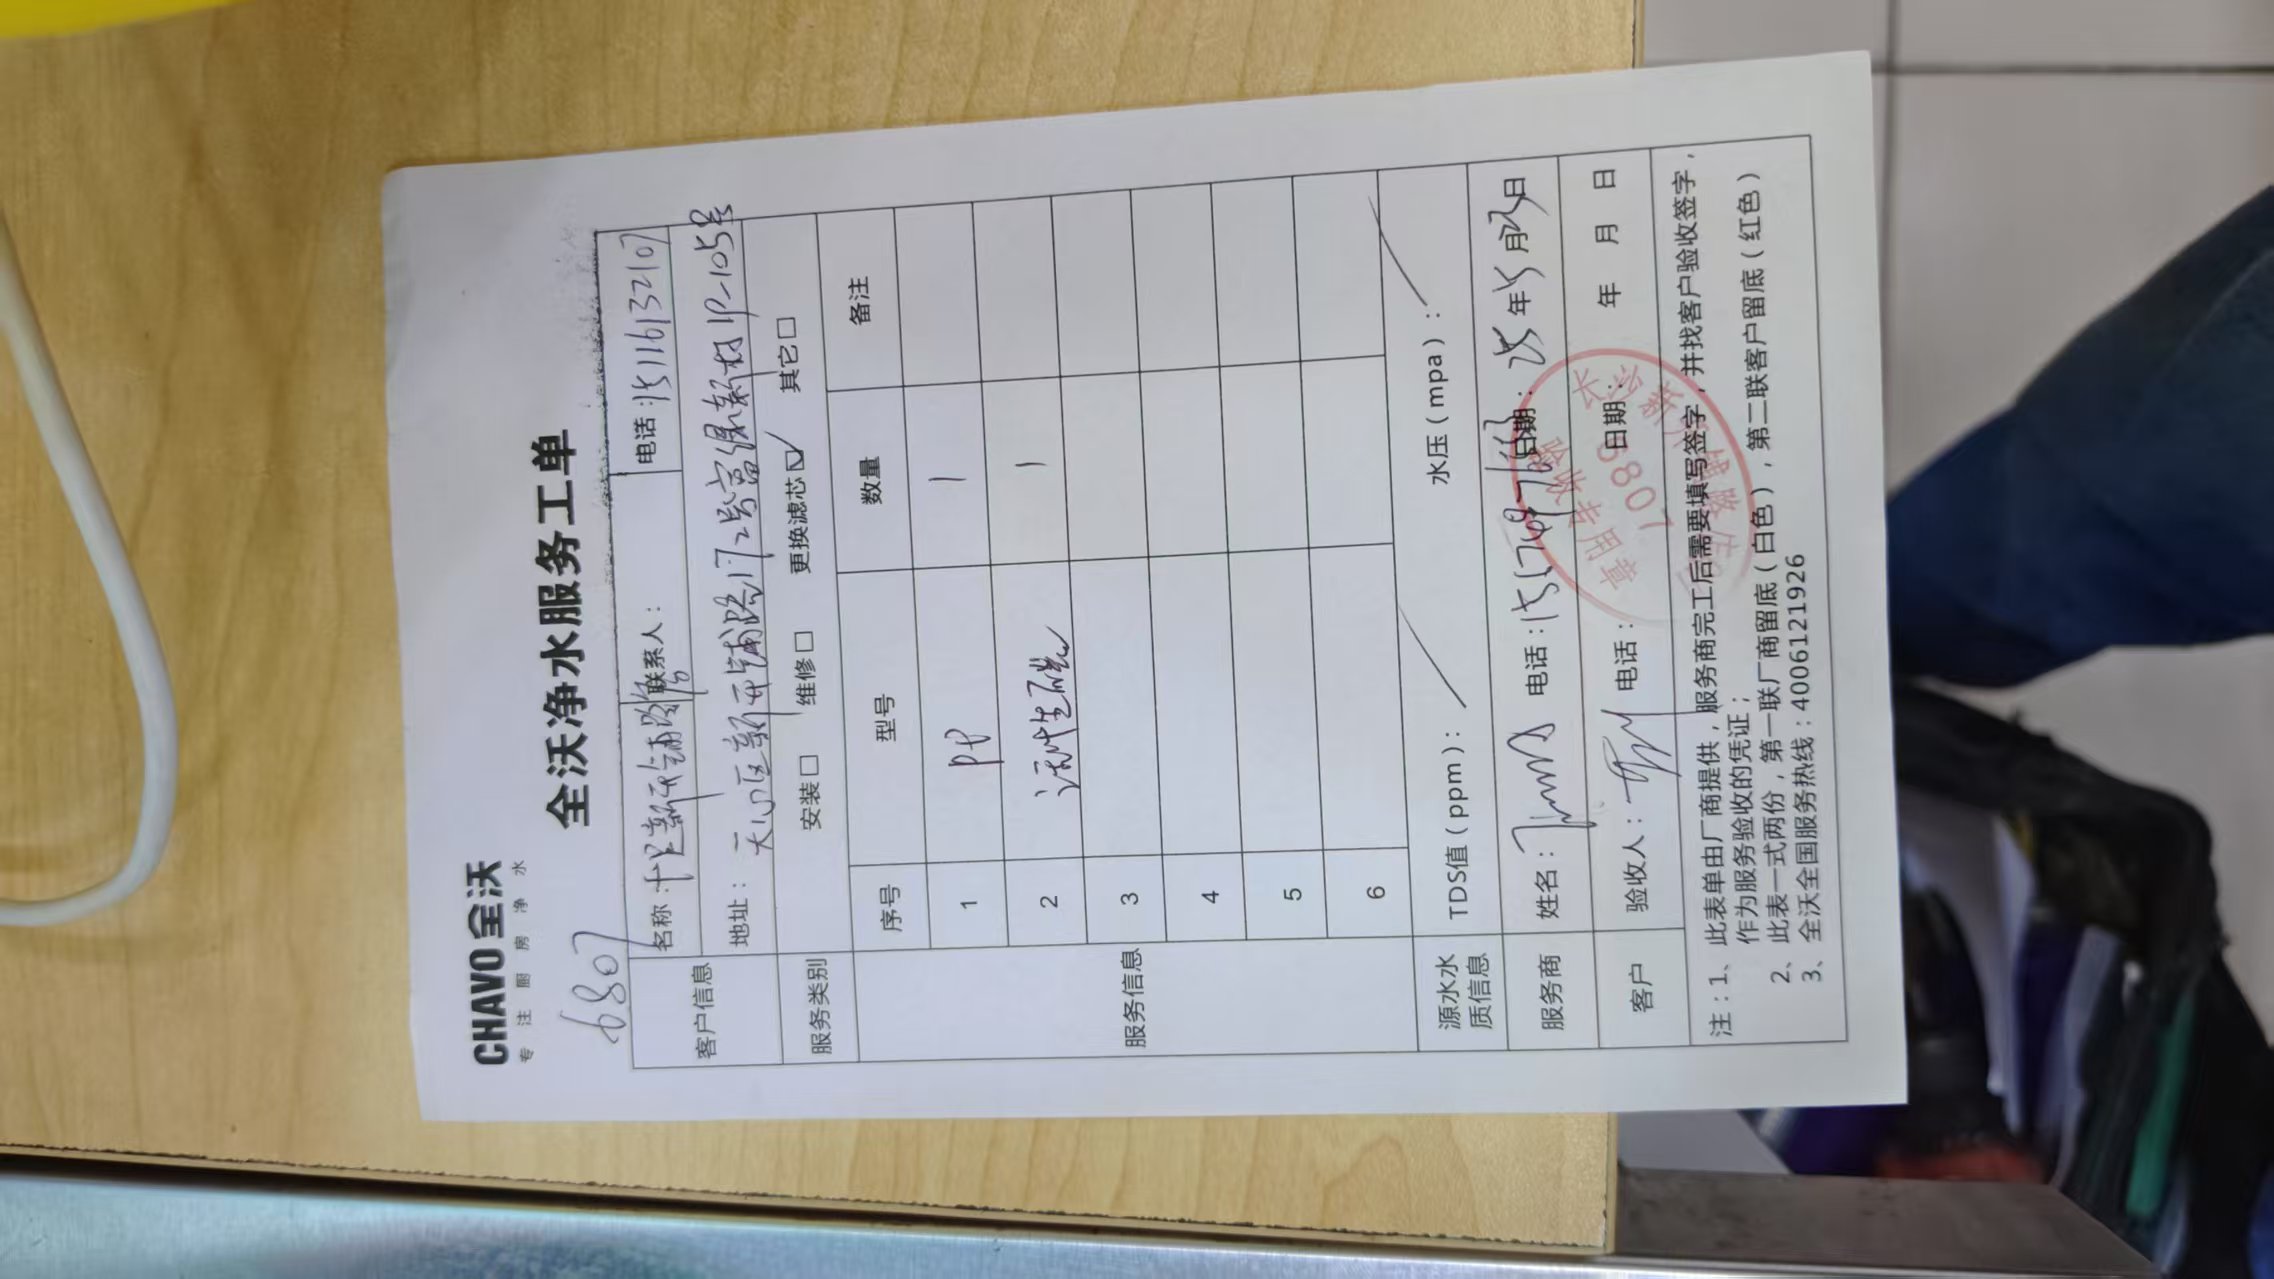 CHAVO 全沃
专注厨房净水
全沃净水服务工单
6807
客户信息 名称: 新开铺路 联系人: 电话:15116132107
地址: 天心区新开铺路172号富绿新村1P-105号
服务类别 安装□ 维修□ 更换滤芯☑ 其它□
服务信息 序号 型号 数量 备注
1 PP 1
2 活性碳 1
3
4
5
6
源水水质信息 TDS值(ppm): 水压(mpa):
服务商 姓名: 电话: 日期: 25年5月23日
客户 验收人: 电话: 日期: 年 月 日
长沙新开铺路店
6807
验收专用章
注:1、此表单由厂商提供,服务商完工后需要填写签字,并找客户验收签字,
作为服务验收的凭证;
2、此表一式两份,第一联厂商留底(白色),第二联客户留底(红色)
3、全沃全国服务热线:4006121926